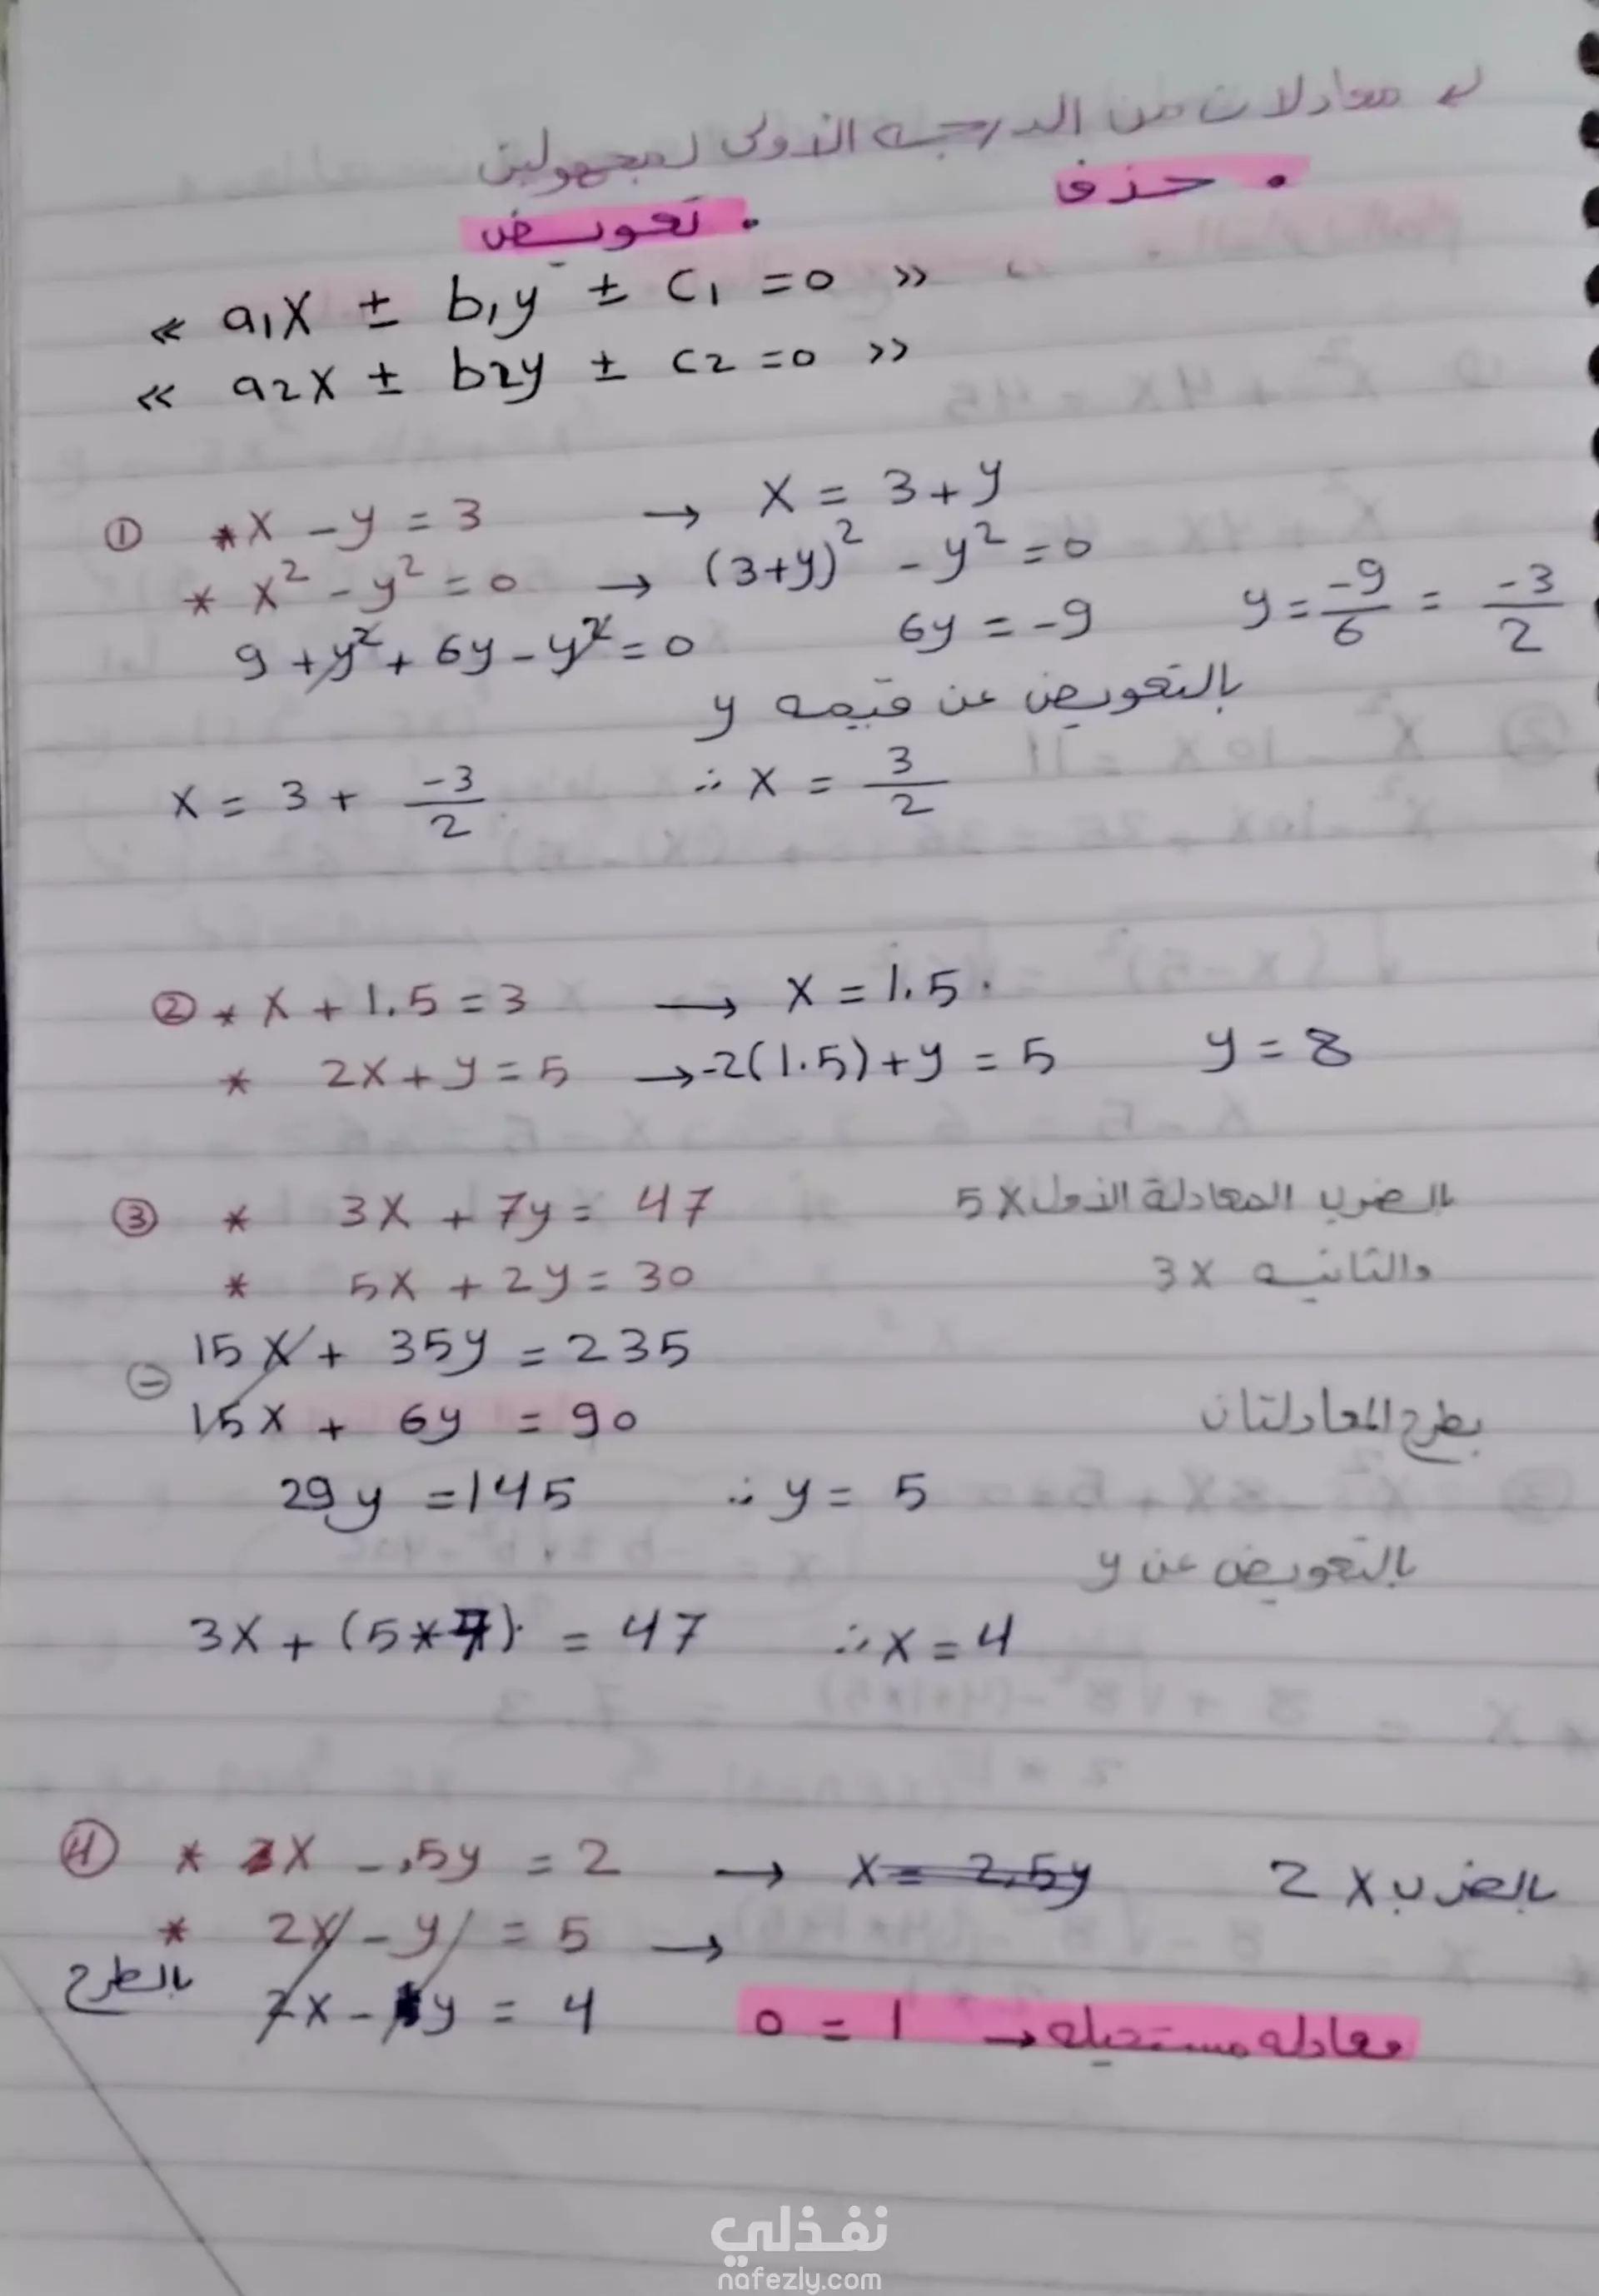 معادلات من الدرجه الاولى لمجهولين
• حذف
• تعويض
« a1x ± b1y ± c1 = 0 »
« a2x ± b2y ± c2 = 0 »
① * x - y = 3 → x = 3 + y
* x² - y² = 0 → (3+y)² - y² = 0
9 + y² + 6y - y² = 0 6y = -9 y = -9/6 = -3/2
بالتعويض عن قيمه y
x = 3 + -3/2 ∴ x = 3/2
② * x + 1.5 = 3 → x = 1.5
* 2x + y = 5 → -2(1.5) + y = 5 y = 8
③ * 3x + 7y = 47 بالضرب المعادلة الاول 5x
* 5x + 2y = 30 والثانيه 3x
15x + 35y = 235
⊖
15x + 6y = 90 بطرح المعادلتان
29y = 145 ∴ y = 5
بالتعويض عن y
3x + (5*7) = 47 ∴ x = 4
④ * x - .5y = 2 → x = 2,5y بالضرب 2x
* 2x - y = 5 →
بالطرح
2x - y = 4 0 = 1 → معادله مستحيله
نفذلي
nafezly.com